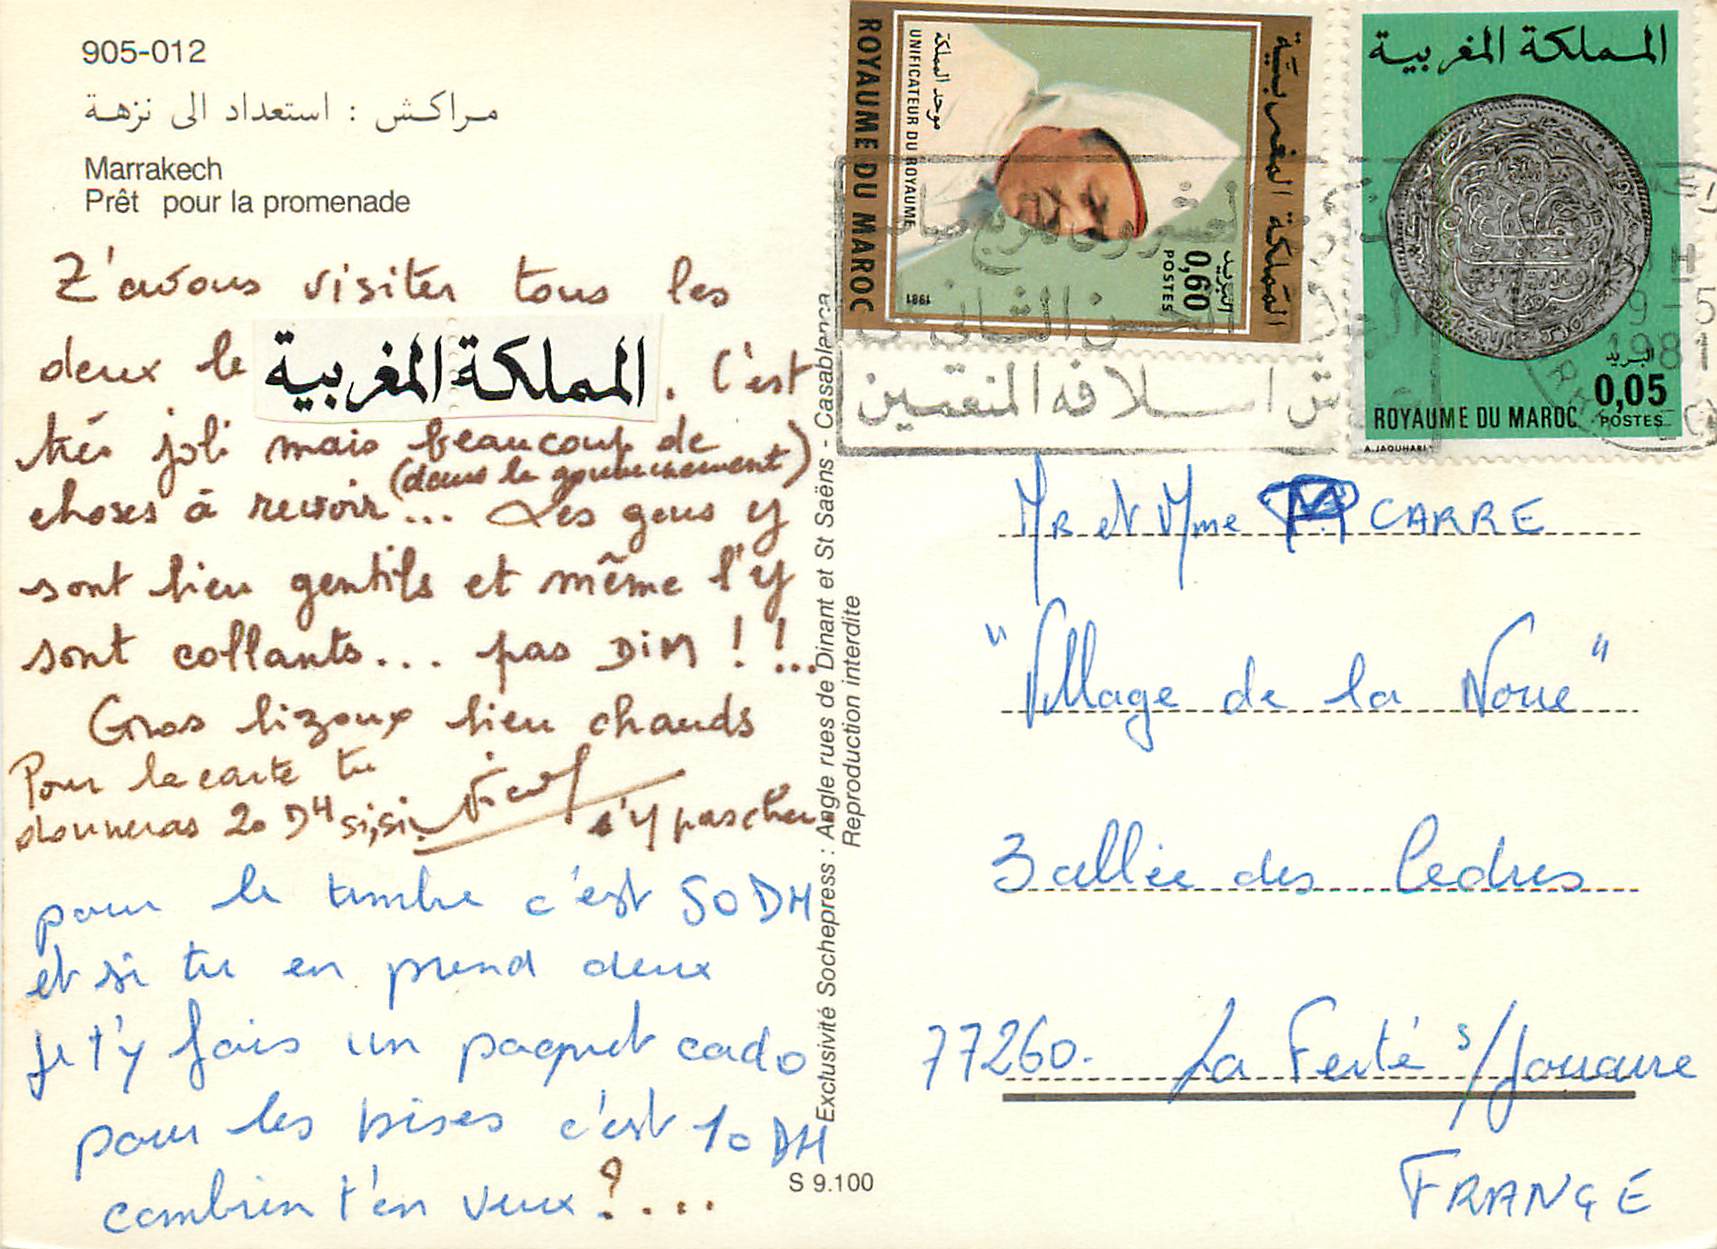 905-012
مراكش : استعداد الى نزهة
Marrakech
Prêt pour la promenade
Z'avons visiter tous les
deux le المملكة المغربية . C'est
très joli mais beaucoup de
choses à revoir (dans le gouvernement)
... Les gens y
sont bien gentils et même l'y
sont collants... pas DiM ! !...
Gros bizoux bien chauds
Pour la carte tu
donneras 20 DH si, si. s'y pas cher.
pour le timbre c'est 50 DH
et si tu en prend deux
je t'y fais un paquet cado
pour les bises c'est 10 DH
combien t'en veux ?...
Exclusivité Sochepress : Angle rues de Dinant et St Saëns - Casablanca
Reproduction interdite
S 9.100
ROYAUME DU MAROC
UNIFICATEUR DU ROYAUME
موحد المملكة
المملكة المغربية
البريد
0,60
POSTES
1981
المملكة المغربية
البريد
0,05
POSTES
ROYAUME DU MAROC
A.JAOUHARI
الحسن الثاني
اسلافه المنعمين
9-5
1981
Mr et Mme CARRE
"Village de la Noue"
3 allée des Cedres
77260. La Ferté s/Jouarre
FRANCE